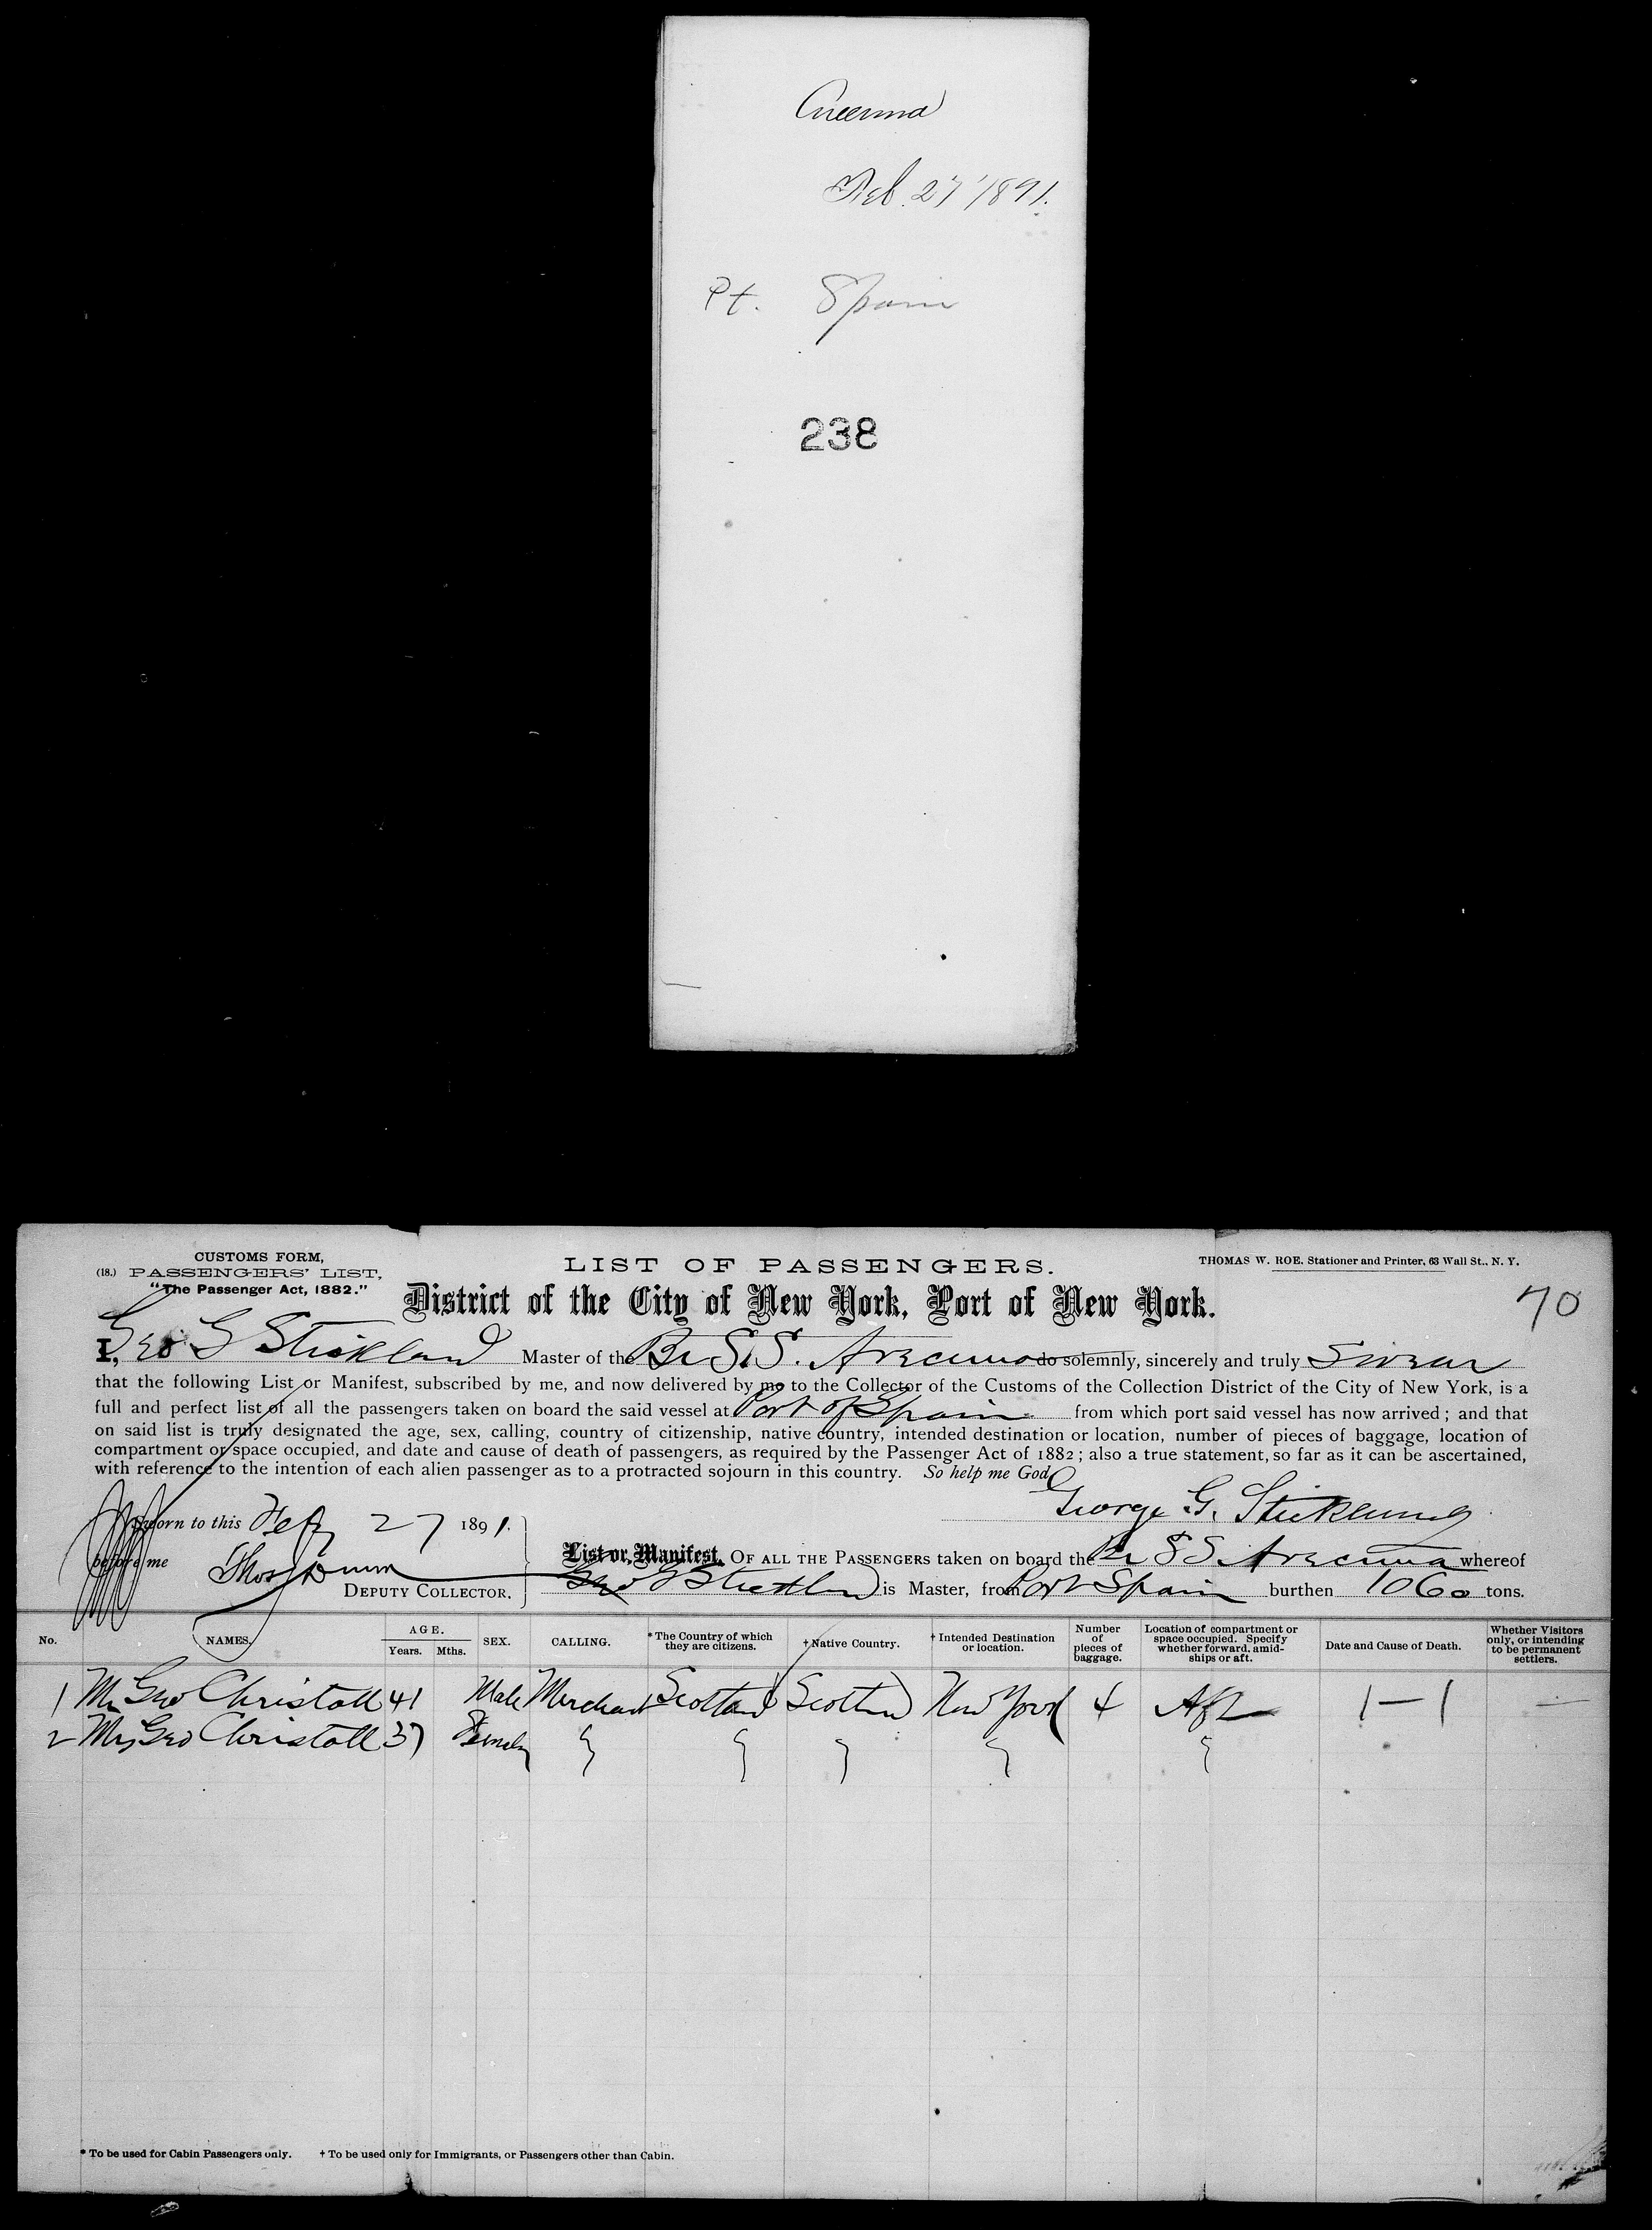 Arecuna
Feb. 27 1891.
Pt. Spain
238
CUSTOMS FORM,
(18.) PASSENGERS' LIST,
"The Passenger Act, 1882."
LIST OF PASSENGERS.
THOMAS W. ROE. Stationer and Printer, 63 Wall St., N. Y.
District of the City of New York, Port of New York.
70
I, Geo G Strickland Master of the Br S.S. Arecuna do solemnly, sincerely and truly Swear
that the following List or Manifest, subscribed by me, and now delivered by me to the Collector of the Customs of the Collection District of the City of New York, is a
full and perfect list of all the passengers taken on board the said vessel at Port of Spain from which port said vessel has now arrived; and that
on said list is truly designated the age, sex, calling, country of citizenship, native country, intended destination or location, number of pieces of baggage, location of
compartment or space occupied, and date and cause of death of passengers, as required by the Passenger Act of 1882; also a true statement, so far as it can be ascertained,
with reference to the intention of each alien passenger as to a protracted sojourn in this country. So help me God.
George G. Strickland
Sworn to this Feby 27 1891.
before me Thos Dunn
DEPUTY COLLECTOR.
List or Manifest, OF ALL THE PASSENGERS taken on board the Br S S Arecuna whereof
Geo G Strickland is Master, from Port Spain burthen 1060 tons.
No. NAMES. AGE. Years. Mths. SEX. CALLING. * The Country of which they are citizens. † Native Country. † Intended Destination or location. Number of pieces of baggage. Location of compartment or space occupied. Specify whether forward, amidships or aft. Date and Cause of Death. Whether Visitors only, or intending to be permanent settlers.
1 Mr Geo Christall 41 Male Merchant Scotland Scotland New York 4 Aft
2 Mrs Geo Christall 37 Female
* To be used for Cabin Passengers only. † To be used only for Immigrants, or Passengers other than Cabin.